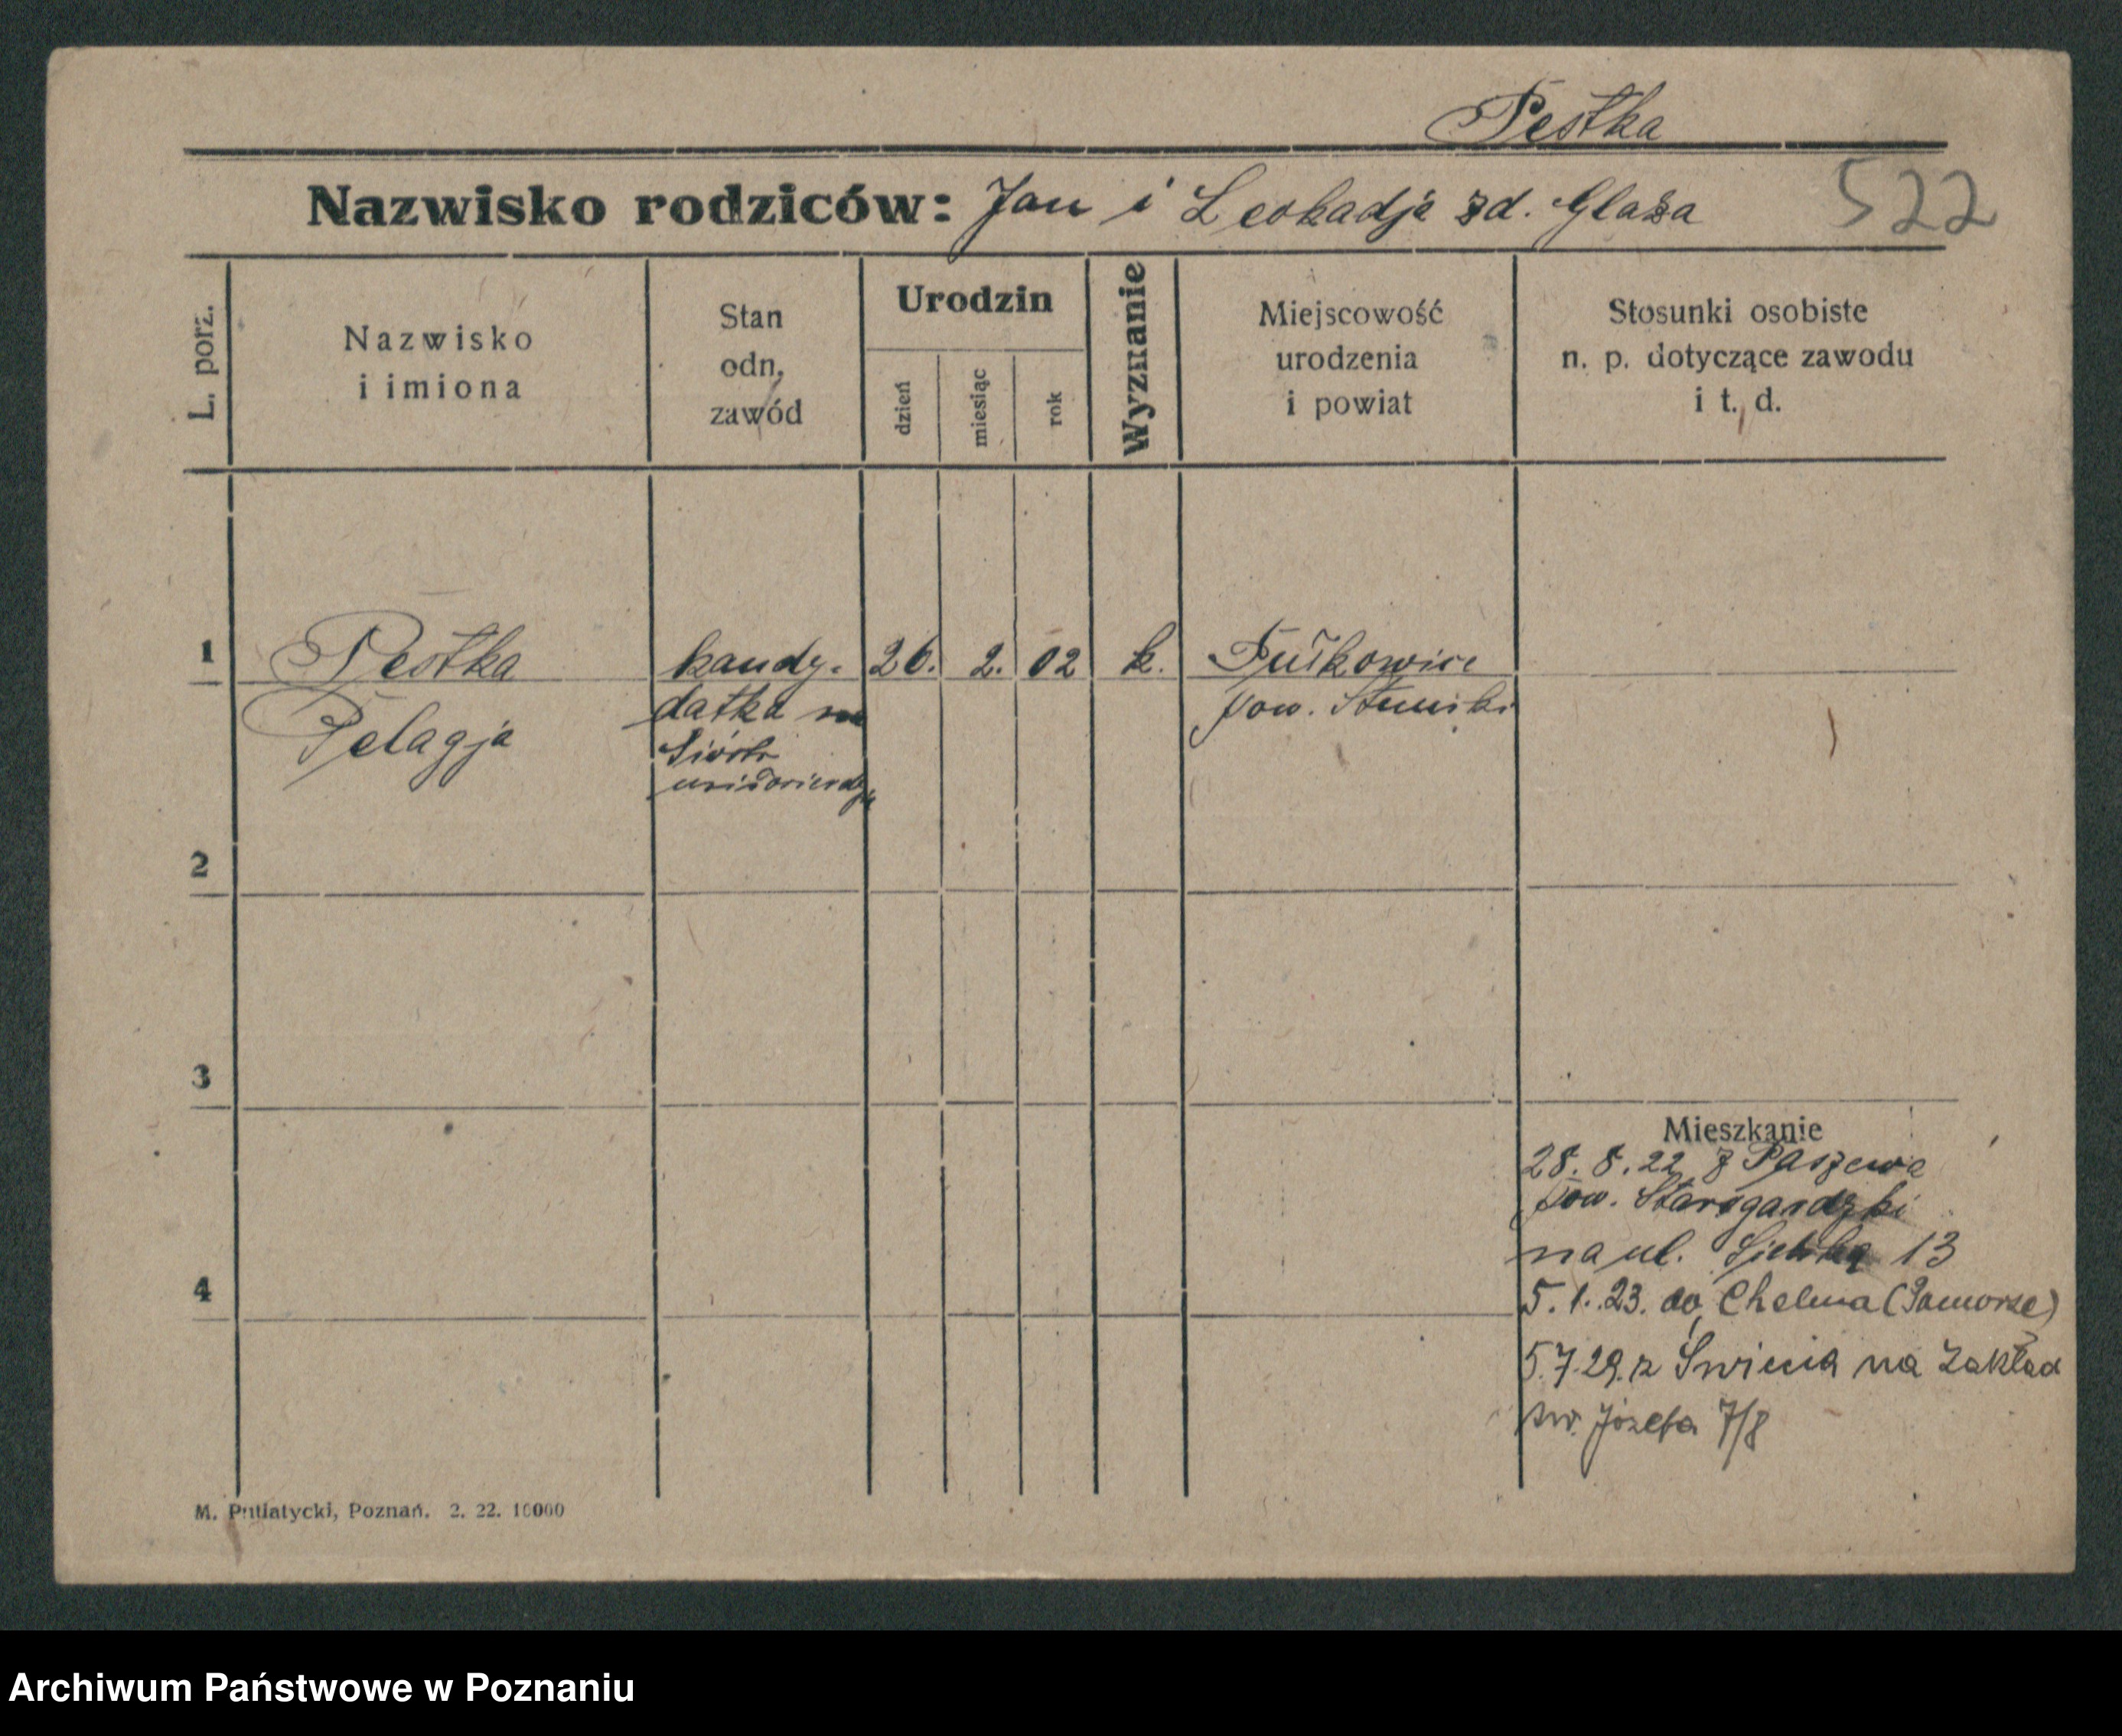 Pestka
Nazwisko rodziców: Jan i Leokadja zd. Glaza 522
L. porz.
Nazwisko
i imiona
Stan
odn.
zawód
Urodzin
dzień
miesiąc
rok
Wyznanie
Miejscowość
urodzenia
i powiat
Stosunki osobiste
n. p. dotyczące zawodu
i t. d.
1 Pestka kandy- 26. 2. 02 k.
Pelagja datka na pow.
2
3
4
Mieszkanie
28. 8. 22 z
pow. Starogardzki
na ul. 13
5. 1. 23. do Chełma (Pomorze)
5.7.29. z Świecia na Zakład
św. Józefa 7/8
M. Putiatycki, Poznań. 2. 22. 10000
Archiwum Państwowe w Poznaniu